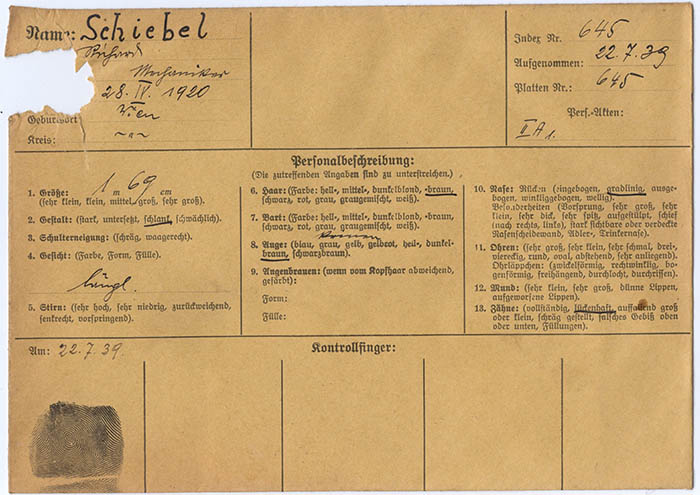 Name: Schiebel
Richard
Mechaniker
28. IV. 1920
Geburtsort Wien
Kreis: -"-
Index Nr. 645
Aufgenommen: 22.7.39
Platten Nr.: 645
Pers.-Akten:
II A 1.
Personalbeschreibung:
(Die zutreffenden Angaben sind zu unterstreichen.)
1. Größe: 1 m 69 cm
(sehr klein, klein, mittel, groß, sehr groß).
2. Gestalt: (stark, untersetzt, schlank, schwächlich).
3. Schulterneigung: (schräg, waagerecht).
4. Gesicht: (Farbe, Form, Fülle).
längl.
5. Stirn: (sehr hoch, sehr niedrig, zurückweichend,
senkrecht, vorspringend).
6. Haar: (Farbe: hell-, mittel-, dunkelblond, -braun,
schwarz, rot, grau, graugemischt, weiß).
7. Bart: (Farbe: hell-, mittel-, dunkelblond, -braun,
schwarz, rot, grau, graugemischt, weiß).
8. Auge: (blau, grau, gelb, gelbrot, hell-, dunkel-
braun, schwarzbraun).
9. Augenbrauen: (wenn vom Kopfhaar abweichend,
gefärbt):
Form:
Fülle:
10. Nase: Rücken (eingebogen, gradlinig, ausge-
bogen, winkliggebogen, wellig).
Besonderheiten (Vorsprung, sehr groß, sehr
klein, sehr dick, sehr spitz, aufgestülpt, schief
(nach rechts, links), stark sichtbare oder verdeckte
Nasenscheidewand, Adler-, Trinkernase).
11. Ohren: (sehr groß, sehr klein, sehr schmal, drei-,
viereckig, rund, oval, abstehend, sehr anliegend).
Ohrläppchen: (zwickelförmig, rechtwinklig, bo-
genförmig, freihängend, durchlocht, durchrissen).
12. Mund: (sehr klein, sehr groß, dünne Lippen,
aufgeworfene Lippen).
13. Zähne: (vollständig, lückenhaft, auffallend groß
oder klein, schräg gestellt, falsches Gebiß oben
oder unten, Füllungen).
Am: 22.7.39.
Kontrollfinger: